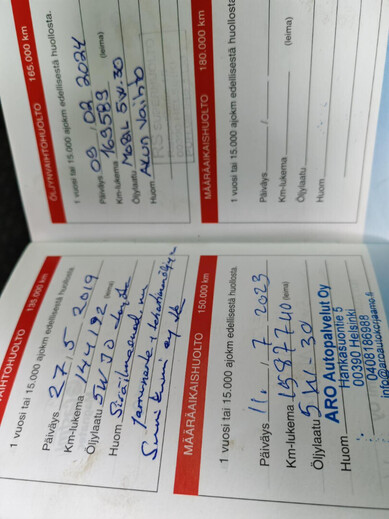 ÖLJYNVAIHTOHUOLTO 165.000 km
1 vuosi tai 15.000 ajokm edellisestä huollosta.
Päiväys 09 / 02 2024
Km-lukema 163583 (leima)
Öljylaatu Mobil 5W-30
Huom Akun vaihto
MÄÄRÄAIKAISHUOLTO 180.000 km
1 vuosi tai 15.000 ajokm edellisestä huollosta.
Päiväys /
Km-lukema (leima)
Öljylaatu
Huom
VAIHTOHUOLTO 135.000 km
1 vuosi tai 15.000 ajokm edellisestä huollosta.
Päiväys 27 / 5 2019
Km-lukema 144192 (leima)
Öljylaatu 5W30
Huom
MÄÄRÄAIKAISHUOLTO 150.000 km
1 vuosi tai 15.000 ajokm edellisestä huollosta.
Päiväys 11. / 7 2023
Km-lukema (leima)
Öljylaatu 5W-30
ARO Autopalvelut Oy
Huom Hankasuontie 5
00390 Helsinki
0408186988